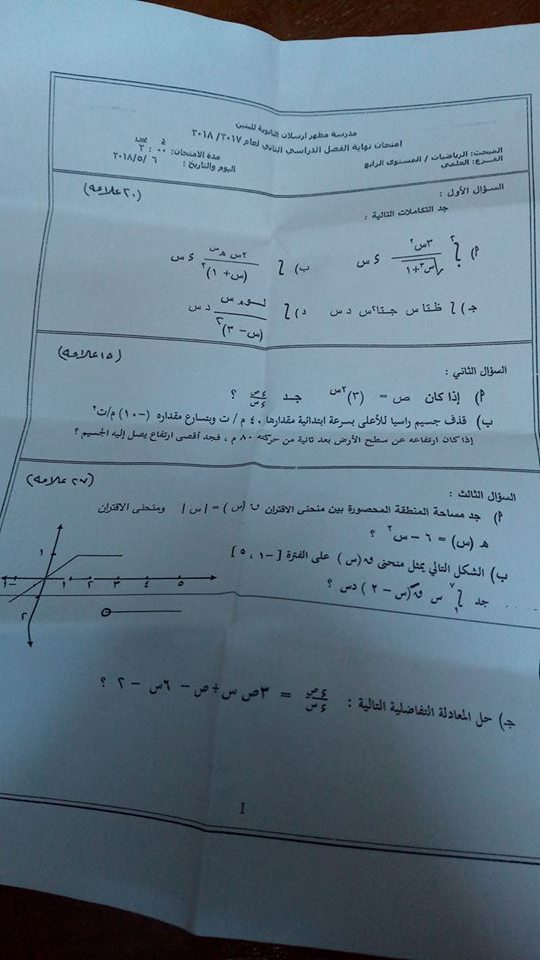 مدرسة مظهر ارسلان الثانوية للبنين
امتحان نهاية الفصل الدراسي الثاني لعام ٢٠١٧/ ٢٠١٨
المبحث: الرياضيات / المستوى الرابع
مدة الامتحان: ٠٠ : ٢
الفرع: العلمي
اليوم والتاريخ : ٦ /٢٠١٨/٥
السؤال الأول :
(٢٠ علامة)
جد التكاملات التالية :
أ) ∫ ٣س٢ / √س٣+١ ء س
ب) ∫ ٢س هـ س / (س+ ١)٢ ء س
جـ) ∫ ظتا س جتا٢س د س
د) ∫ لـوهـ س / (س- ٣)٢ د س
السؤال الثاني :
(١٥ علامة)
أ) إذا كان ص = (٣)٢س جـد ءص/ءس ؟
ب) قذف جسيم راسيا للأعلى بسرعة ابتدائية مقدارها ٤٠ م / ث وبتسارع مقداره (-١٠) م/ث٢
إذا كان ارتفاعه عن سطح الأرض بعد ثانية من حركته ٨٠ م ، فجد أقصى ارتفاع يصل إليه الجسيم ؟
السؤال الثالث :
(٢٧ علامة)
أ) جد مساحة المنطقة المحصورة بين منحنى الاقتران ق(س) = |س| ومنحنى الاقتران
هـ (س) = ٦ - س٢ ؟
ب) الشكل التالي يمثل منحنى ق(س) على الفترة [-١ ، ٥]
جد ∫ س ق(س - ٢) دس ؟
١
-١
١ ٢ ٣ ٤ ٥
٢
جـ) حل المعادلة التفاضلية التالية : ءص/ءس = ٣ص س + ص - ٦س - ٢ ؟
1